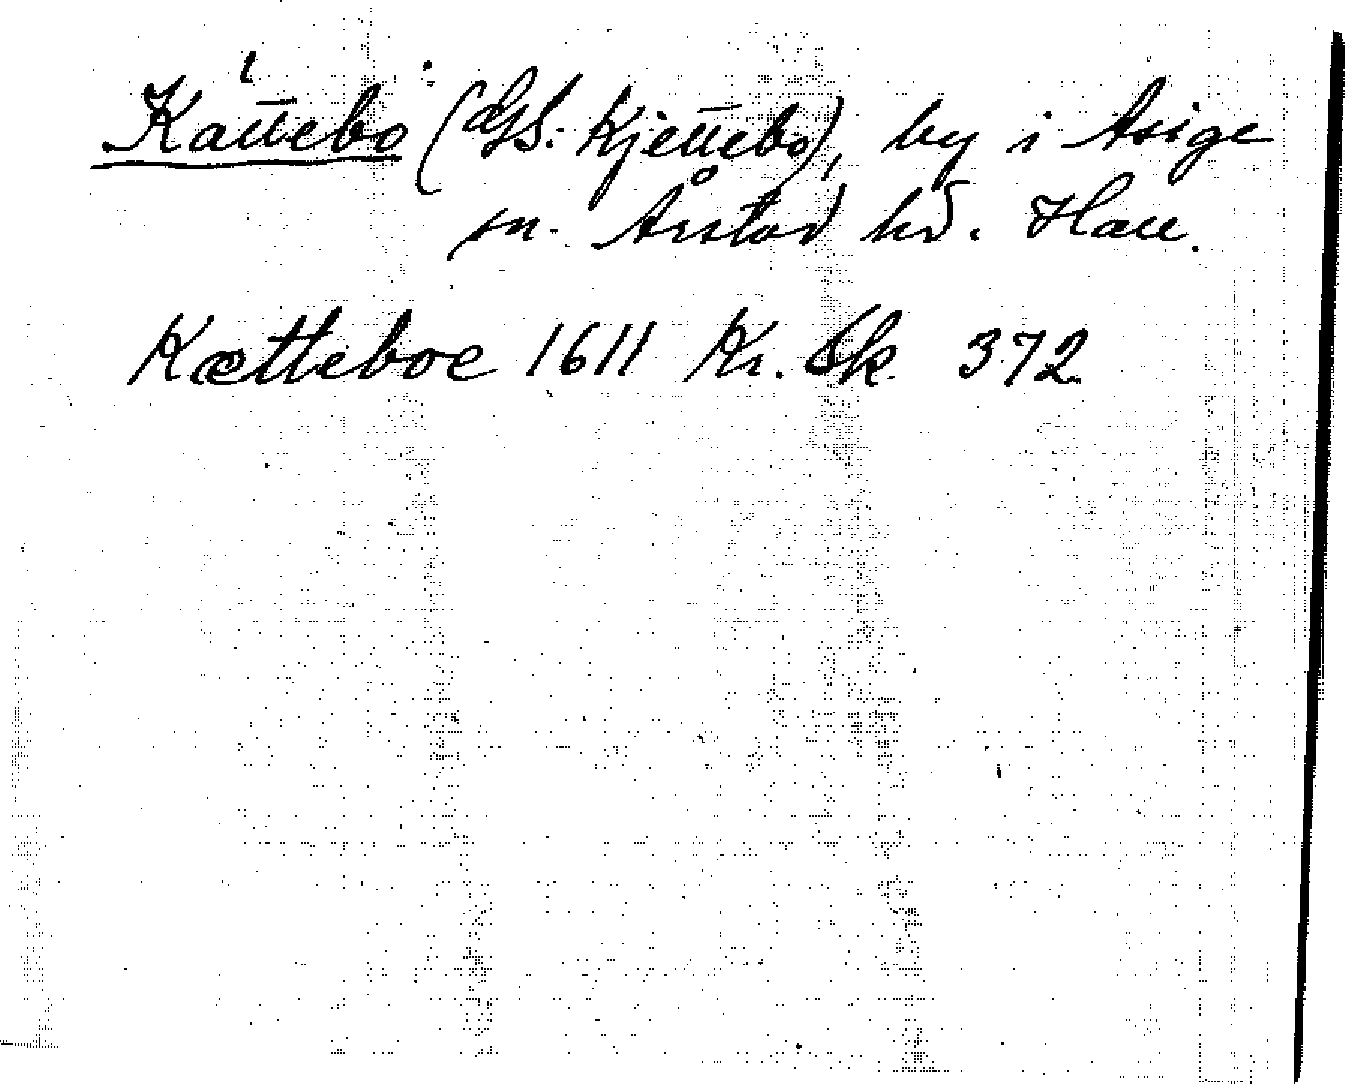 Kattebo (dss. Kjettebo), by i Asige
sn. Årstad hd. Hall.
Kætteboe 1611 Kr. Sk. 372